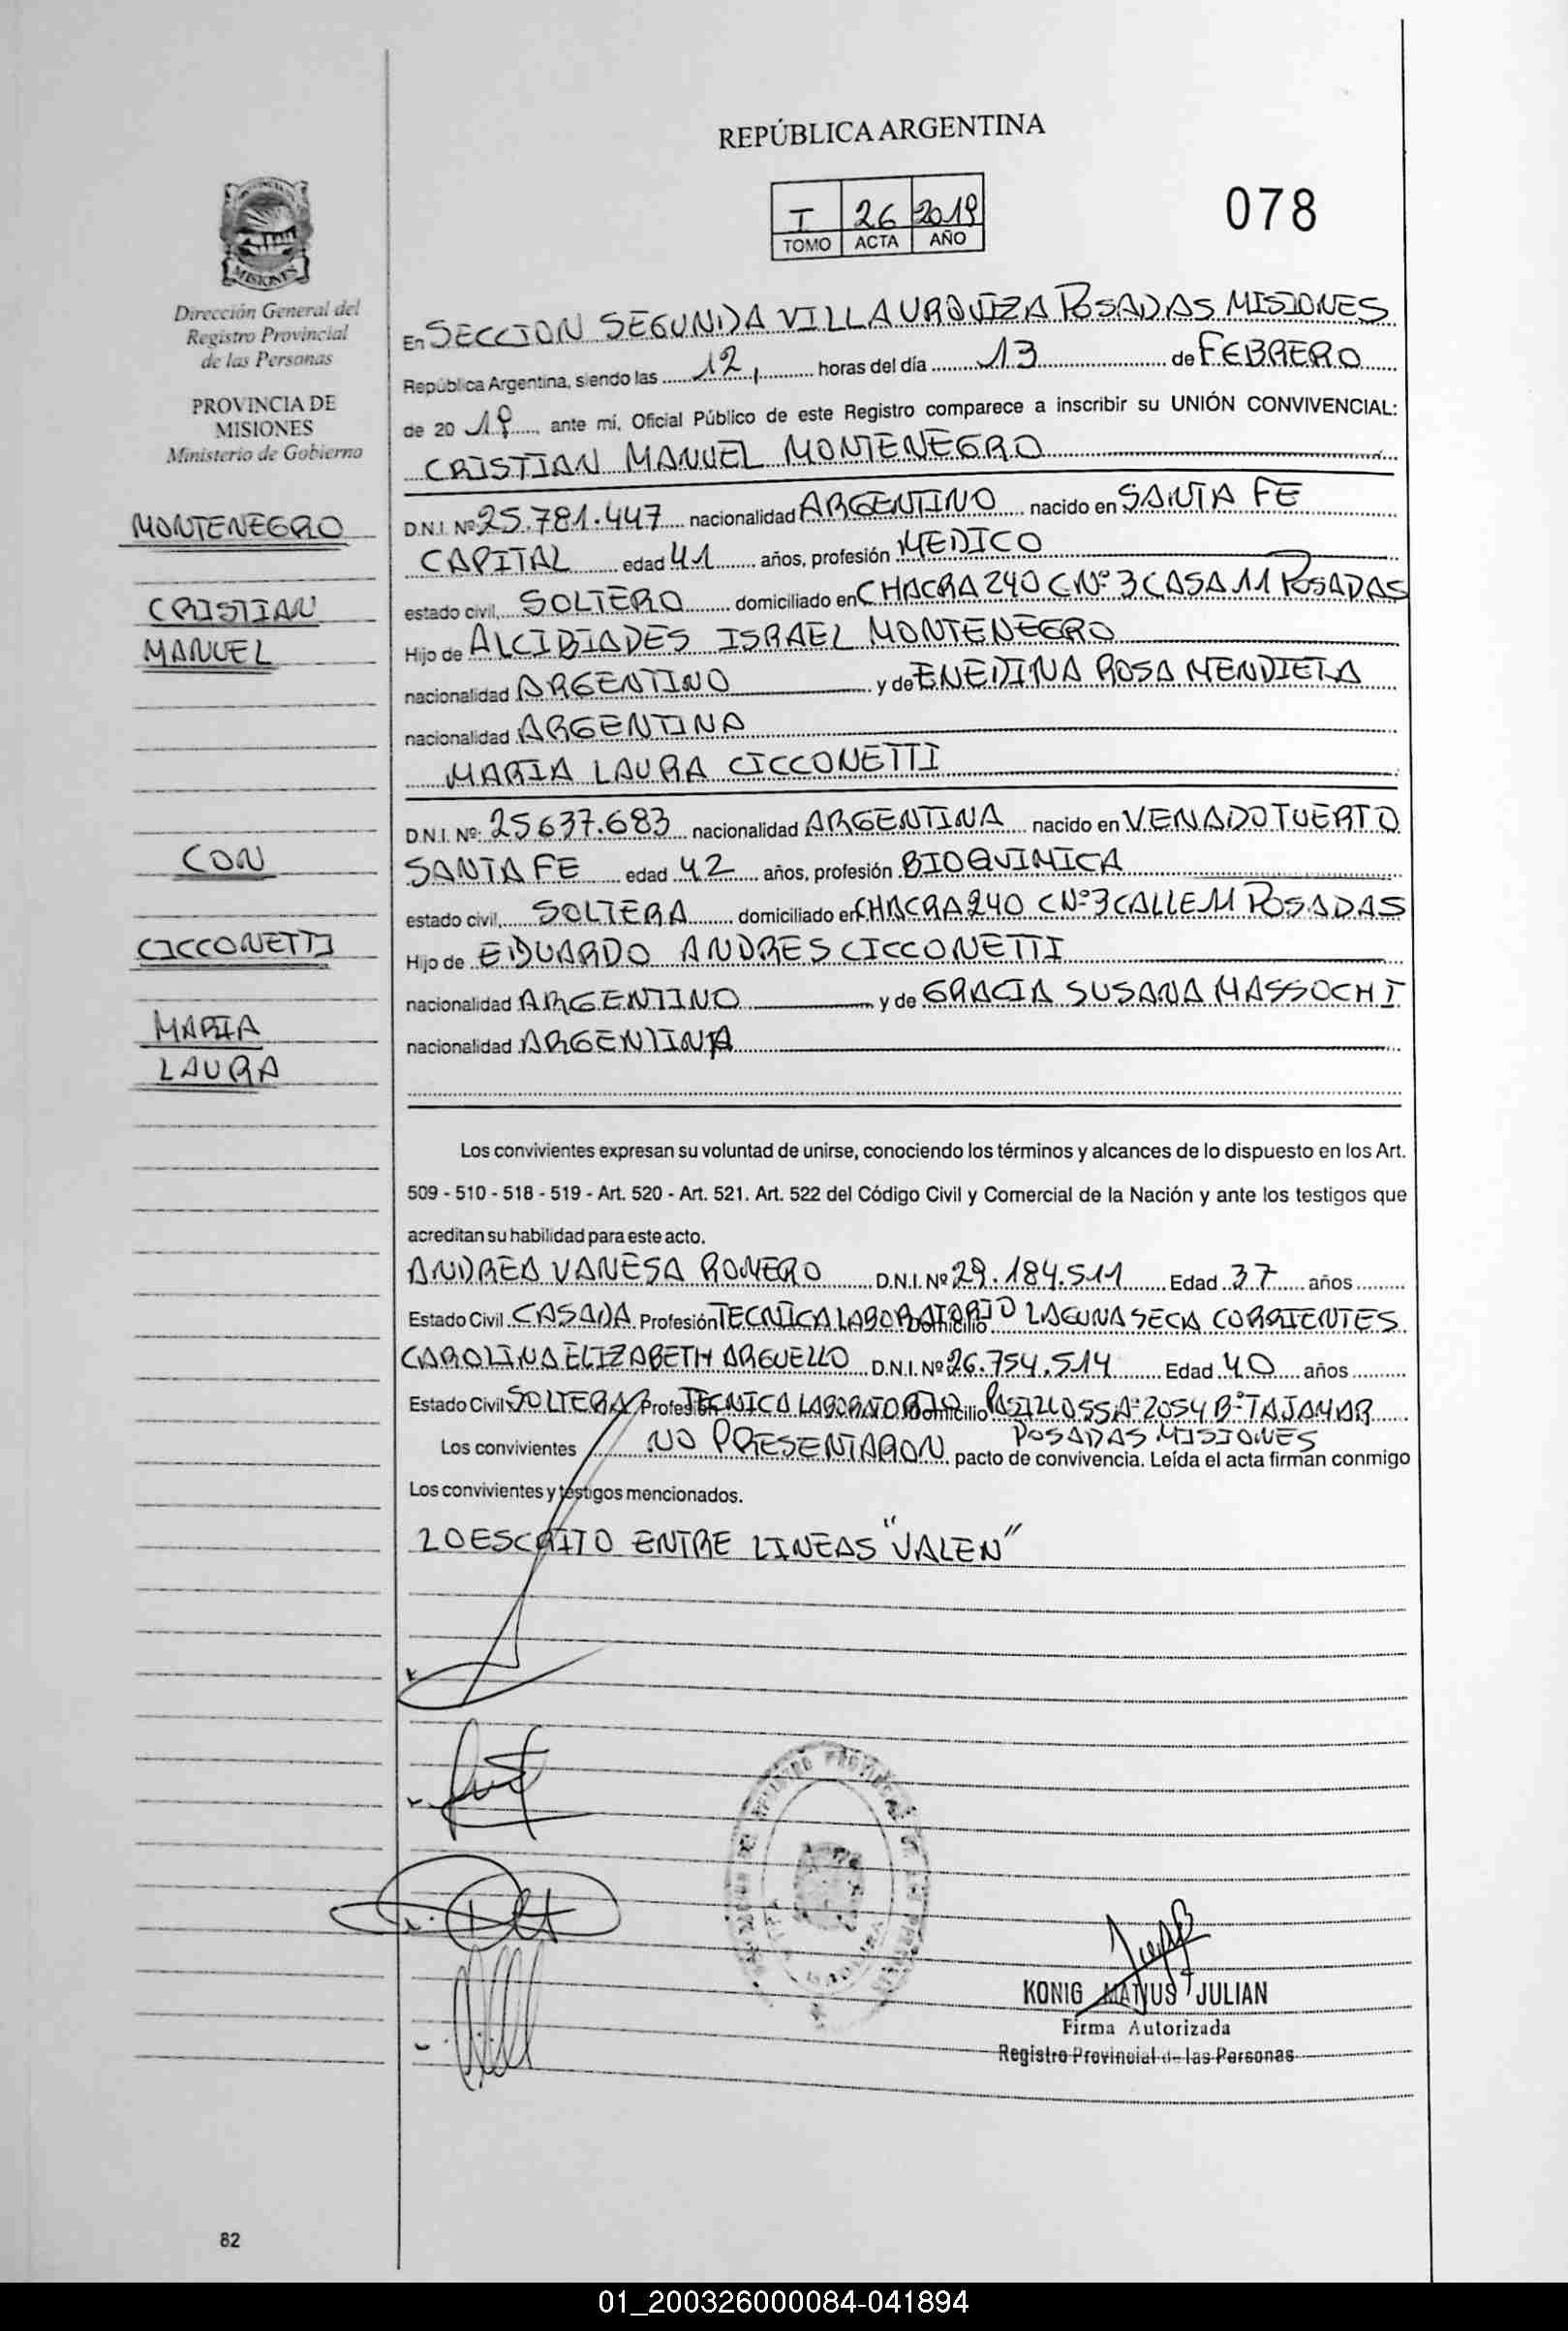 REPÚBLICA ARGENTINA
I 26 2019
TOMO ACTA AÑO
078
MISIONES
Dirección General del
Registro Provincial
de las Personas
PROVINCIA DE
MISIONES
Ministerio de Gobierno
MONTENEGRO
CRISTIAN
MANUEL
CON
CICCONETTI
MARIA
LAURA
En SECCION SEGUNDA VILLA URQUIZA POSADAS MISIONES
República Argentina, siendo las 12, horas del día 13 de FEBRERO
de 20 19 ante mí, Oficial Público de este Registro comparece a inscribir su UNIÓN CONVIVENCIAL:
CRISTIAN MANUEL MONTENEGRO
D.N.I. Nº 25.781.447 nacionalidad ARGENTINO nacido en SANTA FE
CAPITAL edad 41 años, profesión MEDICO
estado civil, SOLTERO domiciliado en CHACRA 240 C Nº 3 CASA 11 POSADAS
Hijo de ALCIBIADES ISRAEL MONTENEGRO
nacionalidad ARGENTINO y de ENEDINA ROSA MENDIETA
nacionalidad ARGENTINA
MARIA LAURA CICCONETTI
D.N.I. Nº: 25637.683 nacionalidad ARGENTINA nacido en VENADO TUERTO
SANTA FE edad 42 años, profesión BIOQUIMICA
estado civil, SOLTERA domiciliado en CHACRA 240 C Nº 3 CALLE 11 POSADAS
Hijo de EDUARDO ANDRES CICCONETTI
nacionalidad ARGENTINO y de GRACIA SUSANA MASSOCHI
nacionalidad ARGENTINA
Los convivientes expresan su voluntad de unirse, conociendo los términos y alcances de lo dispuesto en los Art.
509 - 510 - 518 - 519 - Art. 520 - Art. 521. Art. 522 del Código Civil y Comercial de la Nación y ante los testigos que
acreditan su habilidad para este acto.
ANDREA VANESA ROMERO D.N.I. Nº 29.184.511 Edad 37 años
Estado Civil CASADA Profesión TECNICA LABORATORIO Domicilio LAGUNA SECA CORRIENTES
CAROLINA ELIZABETH ARGUELLO D.N.I. Nº 26.754.514 Edad 40 años
Estado Civil SOLTERA Profesión TECNICA LABORATORIO Domicilio 2054 Bº TAJAMAR
POSADAS MISIONES
Los convivientes NO PRESENTARON pacto de convivencia. Leída el acta firman conmigo
Los convivientes y testigos mencionados.
LO ESCRITO ENTRE LINEAS "VALEN"
KONIG MATIUS JULIAN
Firma Autorizada
Registro Provincial de las Personas
82
01_200326000084-041894